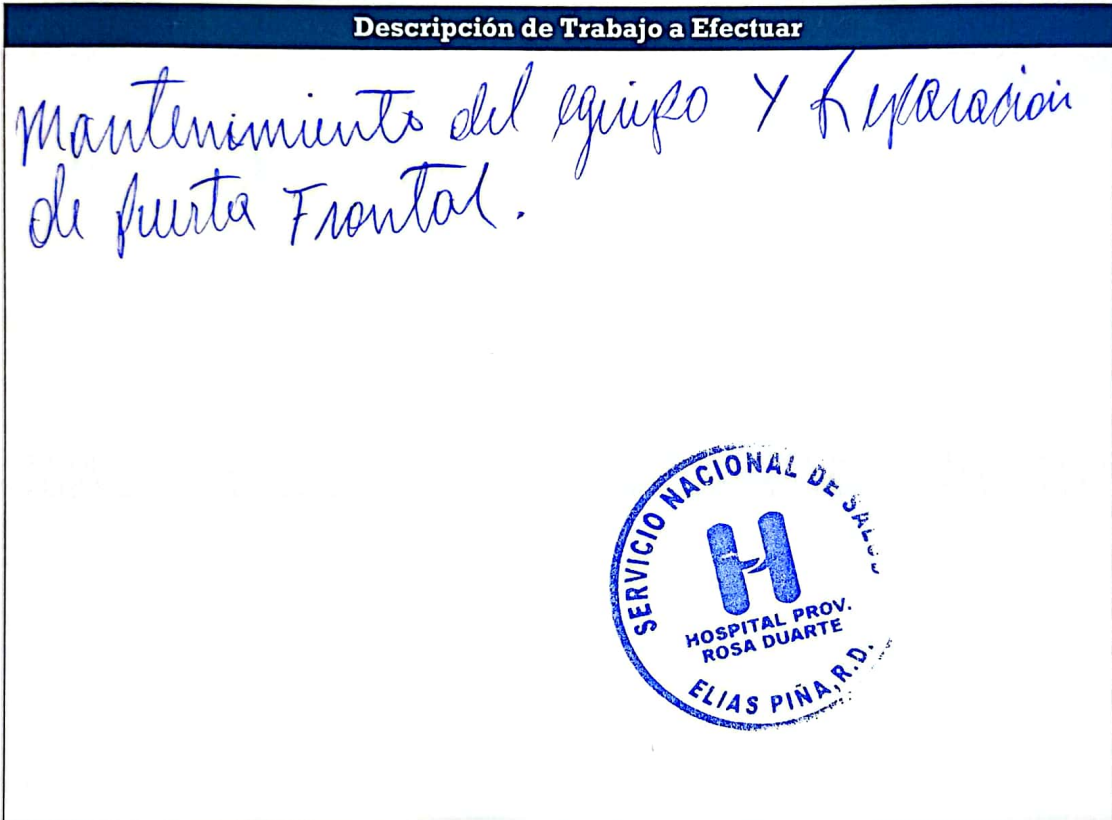 Descripción de Trabajo a Efectuar
Mantenimiento del equipo Y Reparación
de puerta Frontal.
SERVICIO NACIONAL DE SALUD
H
HOSPITAL PROV.
ROSA DUARTE
ELIAS PIÑA, R.D.